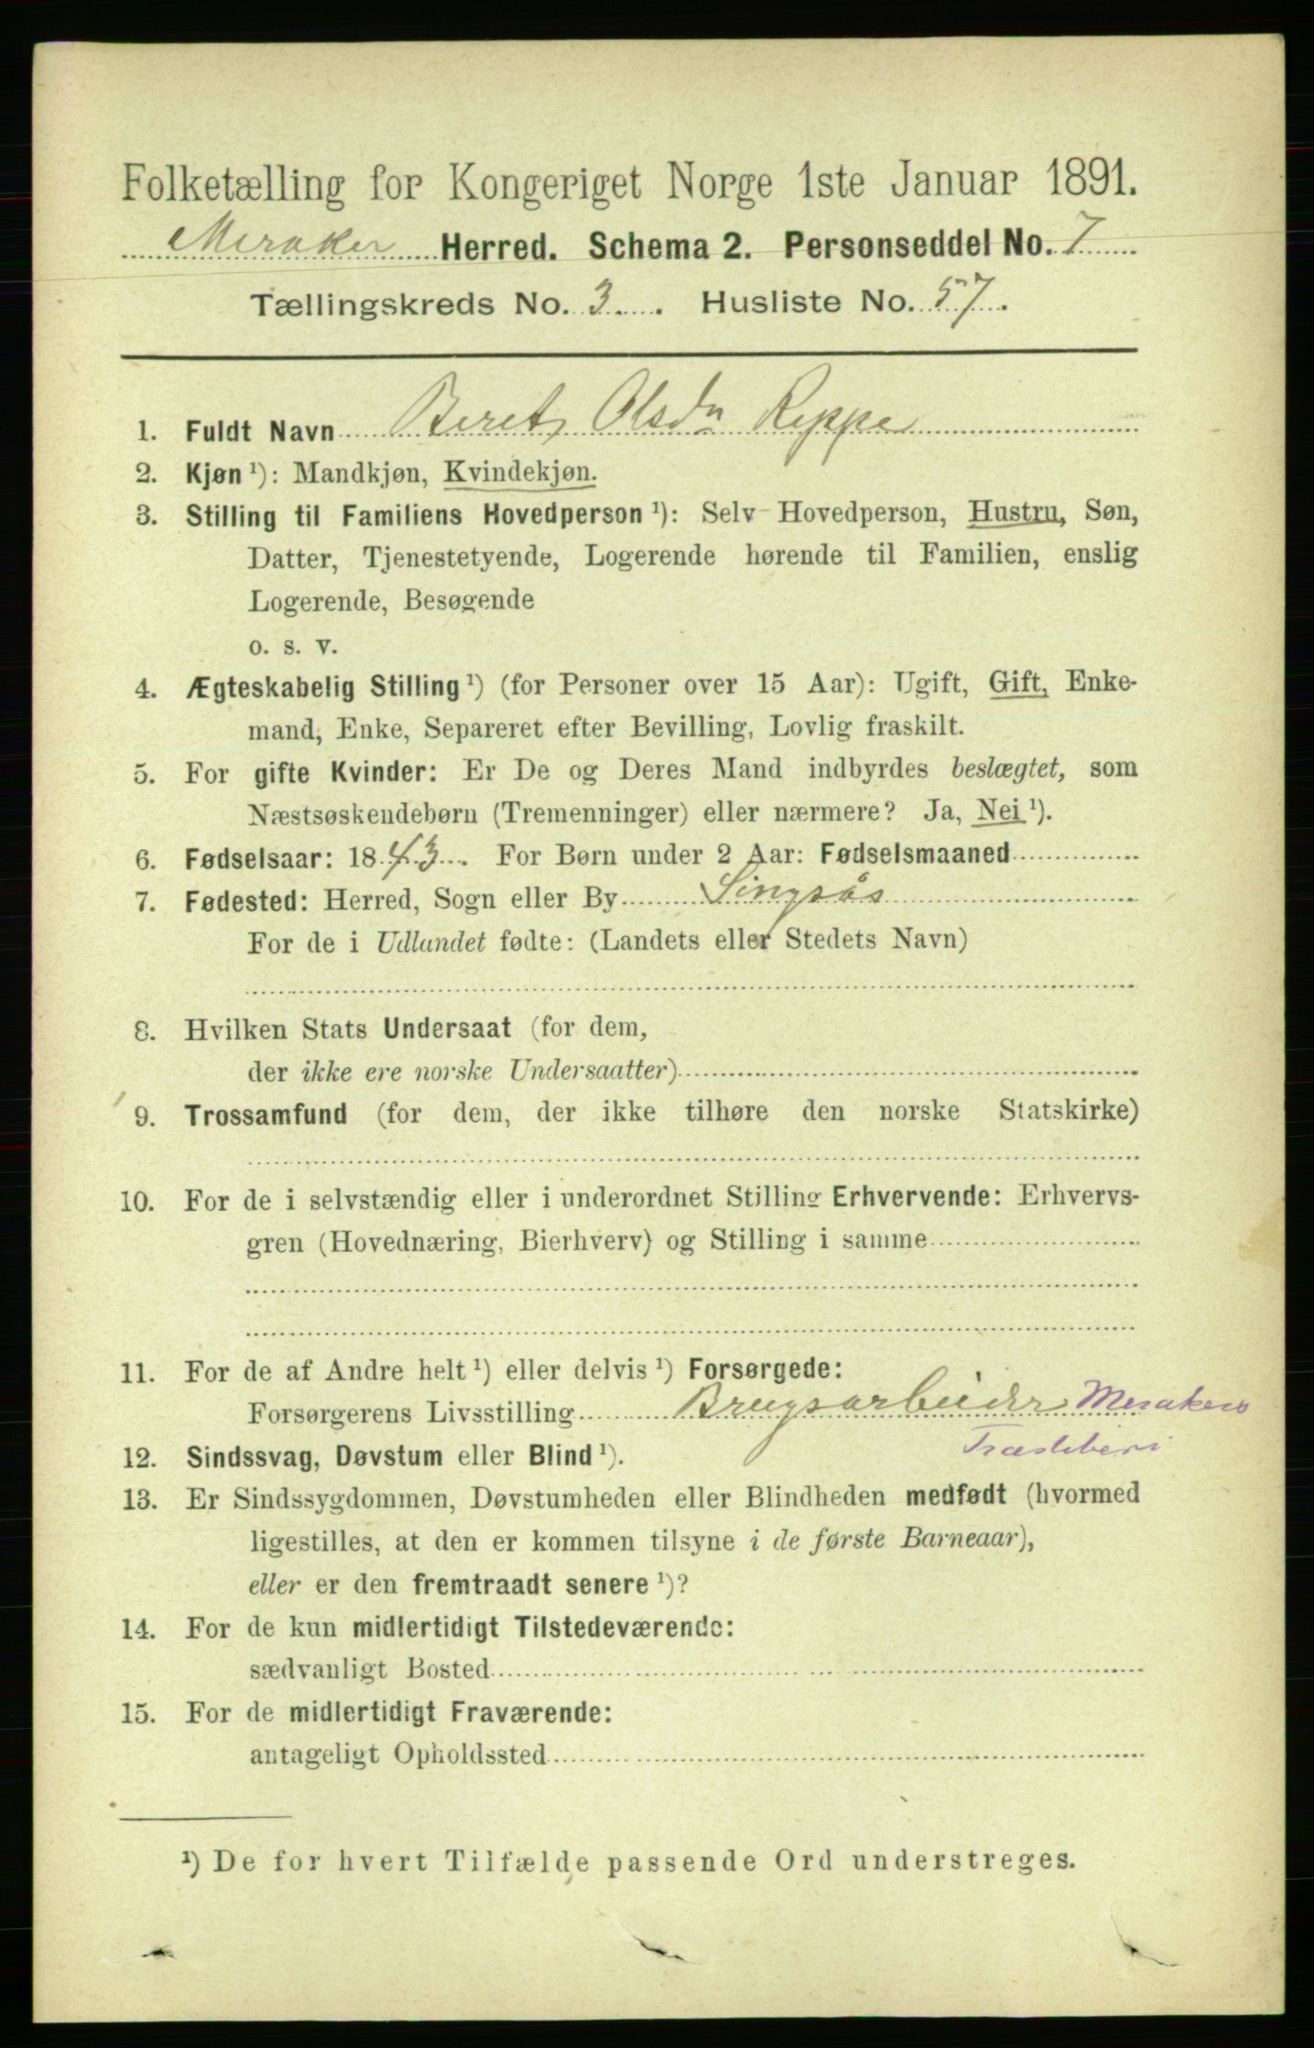 Folketælling for Kongeriget Norge 1ste Januar 1891.
Meraker Herred. Schema 2. Personseddel No. 7
Tællingskreds No. 3. Husliste No. 57.
1. Fuldt Navn Beret Olsdn Reppe
2. Kjøn ¹): Mandkjøn, Kvindekjøn.
3. Stilling til Familiens Hovedperson ¹): Selv Hovedperson, Hustru, Søn,
Datter, Tjenestetyende, Logerende hørende til Familien, enslig
Logerende, Besøgende
o. s. v.
4. Ægteskabelig Stilling ¹) (for Personer over 15 Aar): Ugift, Gift, Enke-
mand, Enke, Separeret efter Bevilling, Lovlig fraskilt.
5. For gifte Kvinder: Er De og Deres Mand indbyrdes beslægtet, som
Næstsøskendebørn (Tremenninger) eller nærmere? Ja, Nei ¹).
6. Fødselsaar: 1843. For Børn under 2 Aar: Fødselsmaaned
7. Fødested: Herred, Sogn eller By Singsås
For de i Udlandet fødte: (Landets eller Stedets Navn)
8. Hvilken Stats Undersaat (for dem,
der ikke ere norske Undersaatter)
9. Trossamfund (for dem, der ikke tilhøre den norske Statskirke)
10. For de i selvstændig eller i underordnet Stilling Erhvervende: Erhvervs-
gren (Hovednæring, Bierhverv) og Stilling i samme
11. For de af Andre helt ¹) eller delvis ¹) Forsørgede:
Forsørgerens Livsstilling Brugsarbeider Merakers
Træsliberi
12. Sindssvag, Døvstum eller Blind ¹).
13. Er Sindssygdommen, Døvstumheden eller Blindheden medfødt (hvormed
ligestilles, at den er kommen tilsyne i de første Barneaar),
eller er den fremtraadt senere ¹)?
14. For de kun midlertidigt Tilstedeværende:
sædvanligt Bosted
15. For de midlertidigt Fraværende:
antageligt Opholdssted
¹) De for hvert Tilfælde passende Ord understreges.